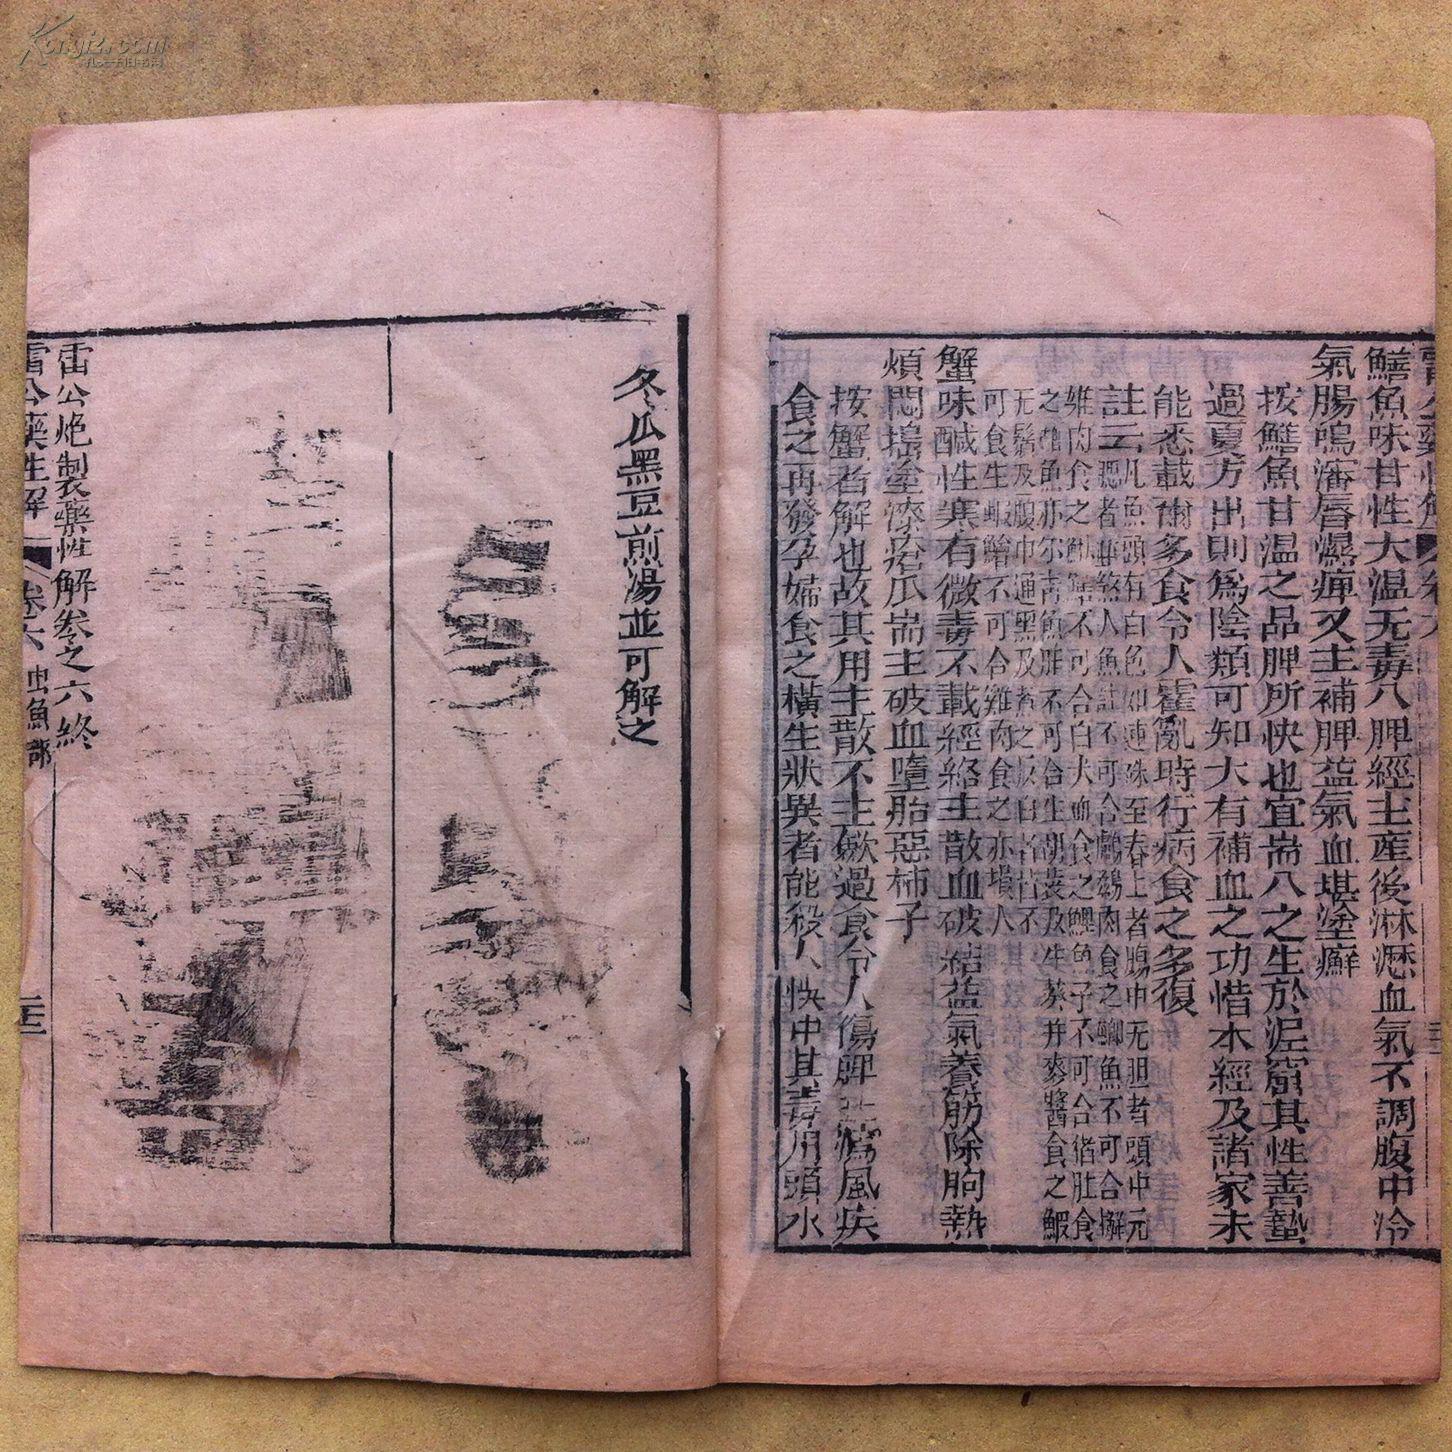 鱔魚味甘性大温无毒入脾經主產後淋瀝血氣不調腹中冷
氣腸鳴濕痺又主補脾益氣血堪塗癬
按鱔魚甘温之品脾所快也宜耑入之生於泥窟其性善蟄
過夏方出則為陰類可知大有補血之功惜本經及諸家未
能悉載爾多食令人霍亂時行病食之多復
註云凡魚頭有白色如連珠至脊上者腸中无胆者頭中无
腮者並煞人魚鮓不可合鸕鷀肉食之鯽魚不可合獬
雉肉食之不可合白犬血食之鯉魚子不可合猪肚食
之魚亦尔青魚胙不可合生胡荽及生葵并麥醬食之鰕
无鬚及腹中通黑及煮之反白者皆不
可食生蝦鱠不可合雞肉食之亦損人
蟹味鹹性寒有微毒不載經絡主散血破結益氣養筋除胸熱
煩悶搗塗漆瘡爪耑主破血墮胎惡柿子
按蟹者解也故其用主散不主歛過食令人傷脾風疾
食之再發孕婦食之橫生狀異者能殺人快中其毒用頭水
冬瓜黑豆煎湯並可解之
雷公炮製藥性解卷之六終
雷公藥性解 卷六 虫魚部
Kongfz.com